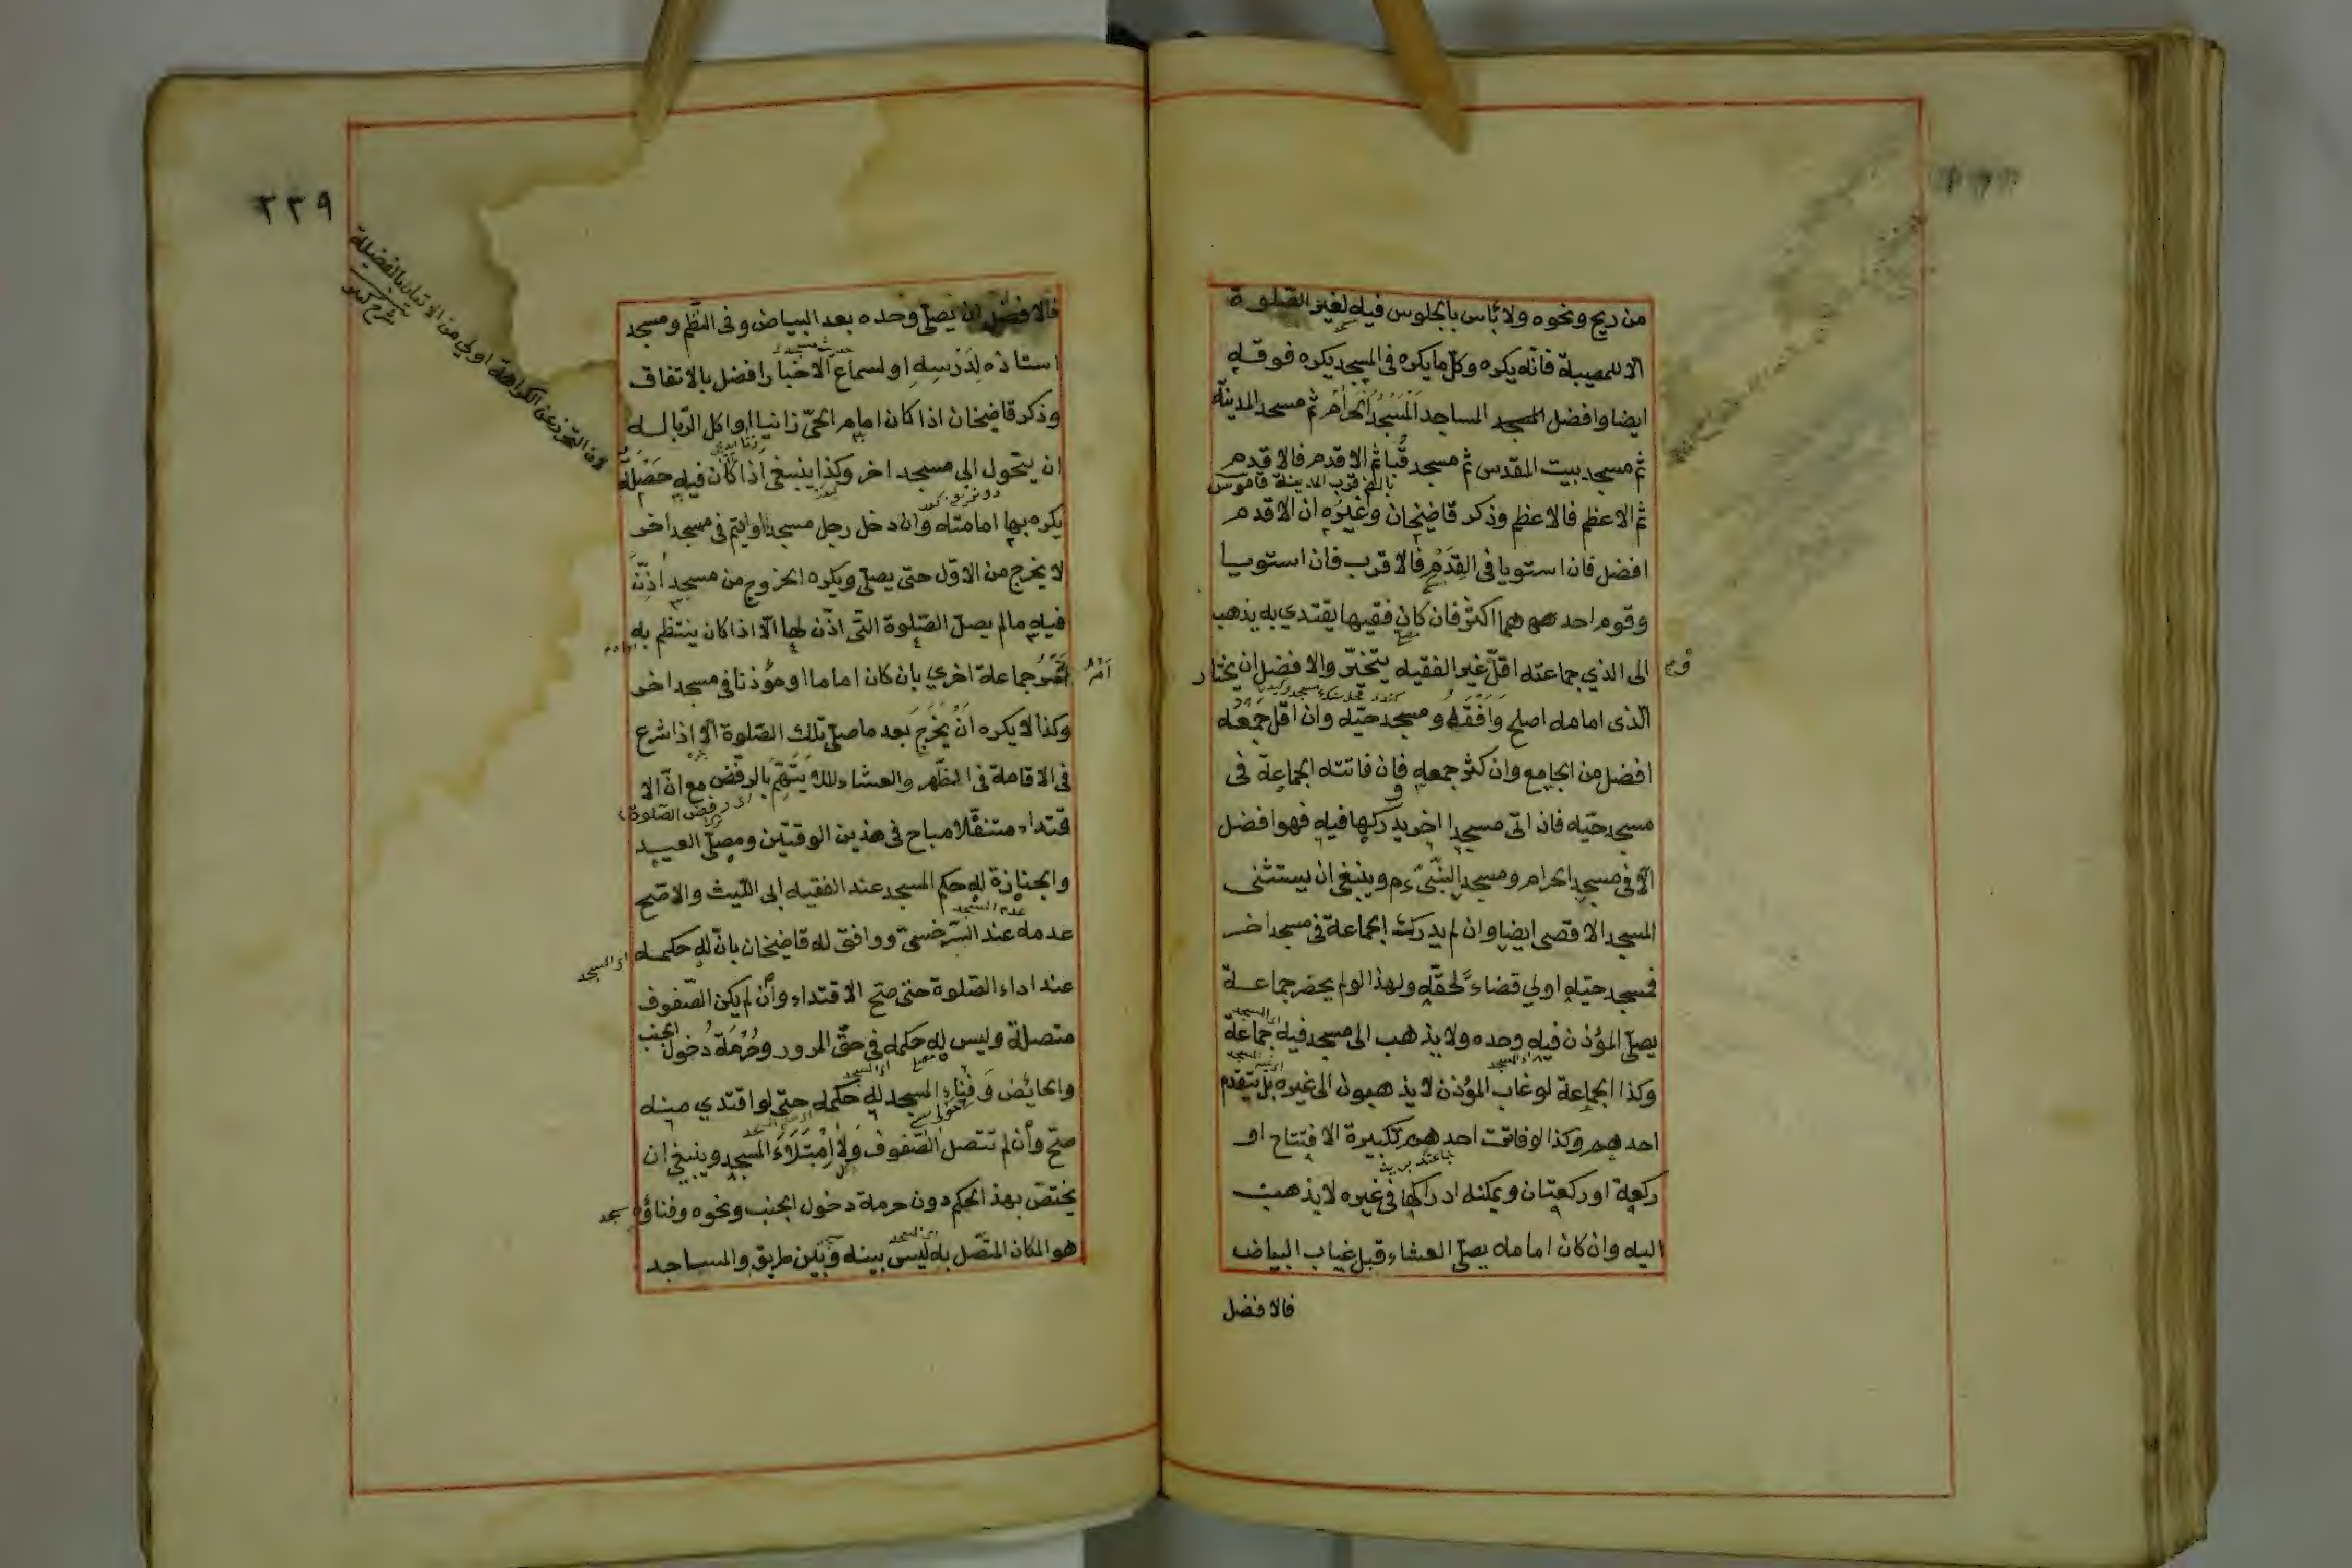 من ريح ونحوه ولا بأس بالجلوس فيه لغير الصلوة
الا للمصيبة فانه يكره وكل ما يكره فى المسجد يكره فوقه
ايضا وافضل المساجد المسجد الحرام ثم مسجد المدينة
ثم مسجد بيت المقدس ثم مسجد قبا ثم الاقدم فالاقدم
ثم الاعظم فالاعظم وذكر قاضيخان وغيره ان الاقدم
افضل فان استويا فى القدم فالاقرب فان استويا
وقوم احدهما اكثر فان كان فقيها يقتدي به يذهب
الى الذي جماعته اقل غير الفقيه يتخير والافضل ان يختار
الذى امامه اصلح وافقه ومسجد حيه وان اقل جمعه
افضل من الجامع وان كثر جمعه فان فاتته الجماعة فى
مسجد حيه فان اتى مسجدا اخر يدركها فيه فهو افضل
الا فى مسجد الحرام ومسجد النبي ءم وينبغى ان يستثنى
المسجد الاقصى ايضا وان لم يدرك الجماعة فى مسجد اخر
فمسجد حيه اولي قضاء لحقه ولهذا لو لم يحضر جماعة
يصلى المؤذن فيه وحده ولا يذهب الى مسجد فيه جماعة
وكذا الجماعة لو غاب المؤذن لا يذهبون الى غيره بل يتقدم
احدهم وكذا لو فاتت احدهم تكبيرة الافتتاح او
ركعة او ركعتان ويمكنه ادراكها فى غيره لا يذهب
اليه وان كان امامه يصلى العشاء قبل غياب البياض
فالافضل
٢٢٩
لان التحرز عن الكراهة اولي من الاتيان بالفضيلة
فالافضل ان يصلى وحده بعد البياض وفى النظم ومسجد
استاذه لدرسه او لسماع الاخبار افضل بالاتفاق
وذكر قاضيخان اذا كان امام الحى زانيا او اكل الربا له
ان يتحول الى مسجد اخر وكذا ينبغى اذا كان فيه خصلة
يكره بها امامته وان دخل رجل مسجدا او ايتم فى مسجد اخر
لا يخرج من الاول حتى يصلى ويكره الخروج من مسجد اذن
فيه ما لم يصل الصلوة التى اذن لها الا اذا كان ينتظم به
امر جماعة اخري بان كان اماما او مؤذنا فى مسجد اخر
وكذا لا يكره ان يخرج بعد ما صلى تلك الصلوة الا اذا شرع
فى الاقامة فى الظهر والعشاء لئلا يتهم بالرفض مع ان الا
قتداء متنفلا مباح فى هذين الوقتين ومصلى العيد
والجنازة له حكم المسجد عند الفقيه ابى الليث والاصح
عدمه عند السرخسى ووافق له قاضيخان بان له حكمه
عند اداء الصلوة حتى صح الاقتداء وان لم يكن الصفوف
متصلة وليس له حكمه فى حق المرور وحرمة دخول الجنب
والحائض وفناء المسجد له حكمه حتى لو اقتدي منه
صح وان لم تتصل الصفوف ولا امتلاء المسجد وينبغى ان
يختص بهذا الحكم دون حرمة دخول الجنب ونحوه وفناؤه
هو المكان المتصل به ليس بينه وبين طريق والمساجد